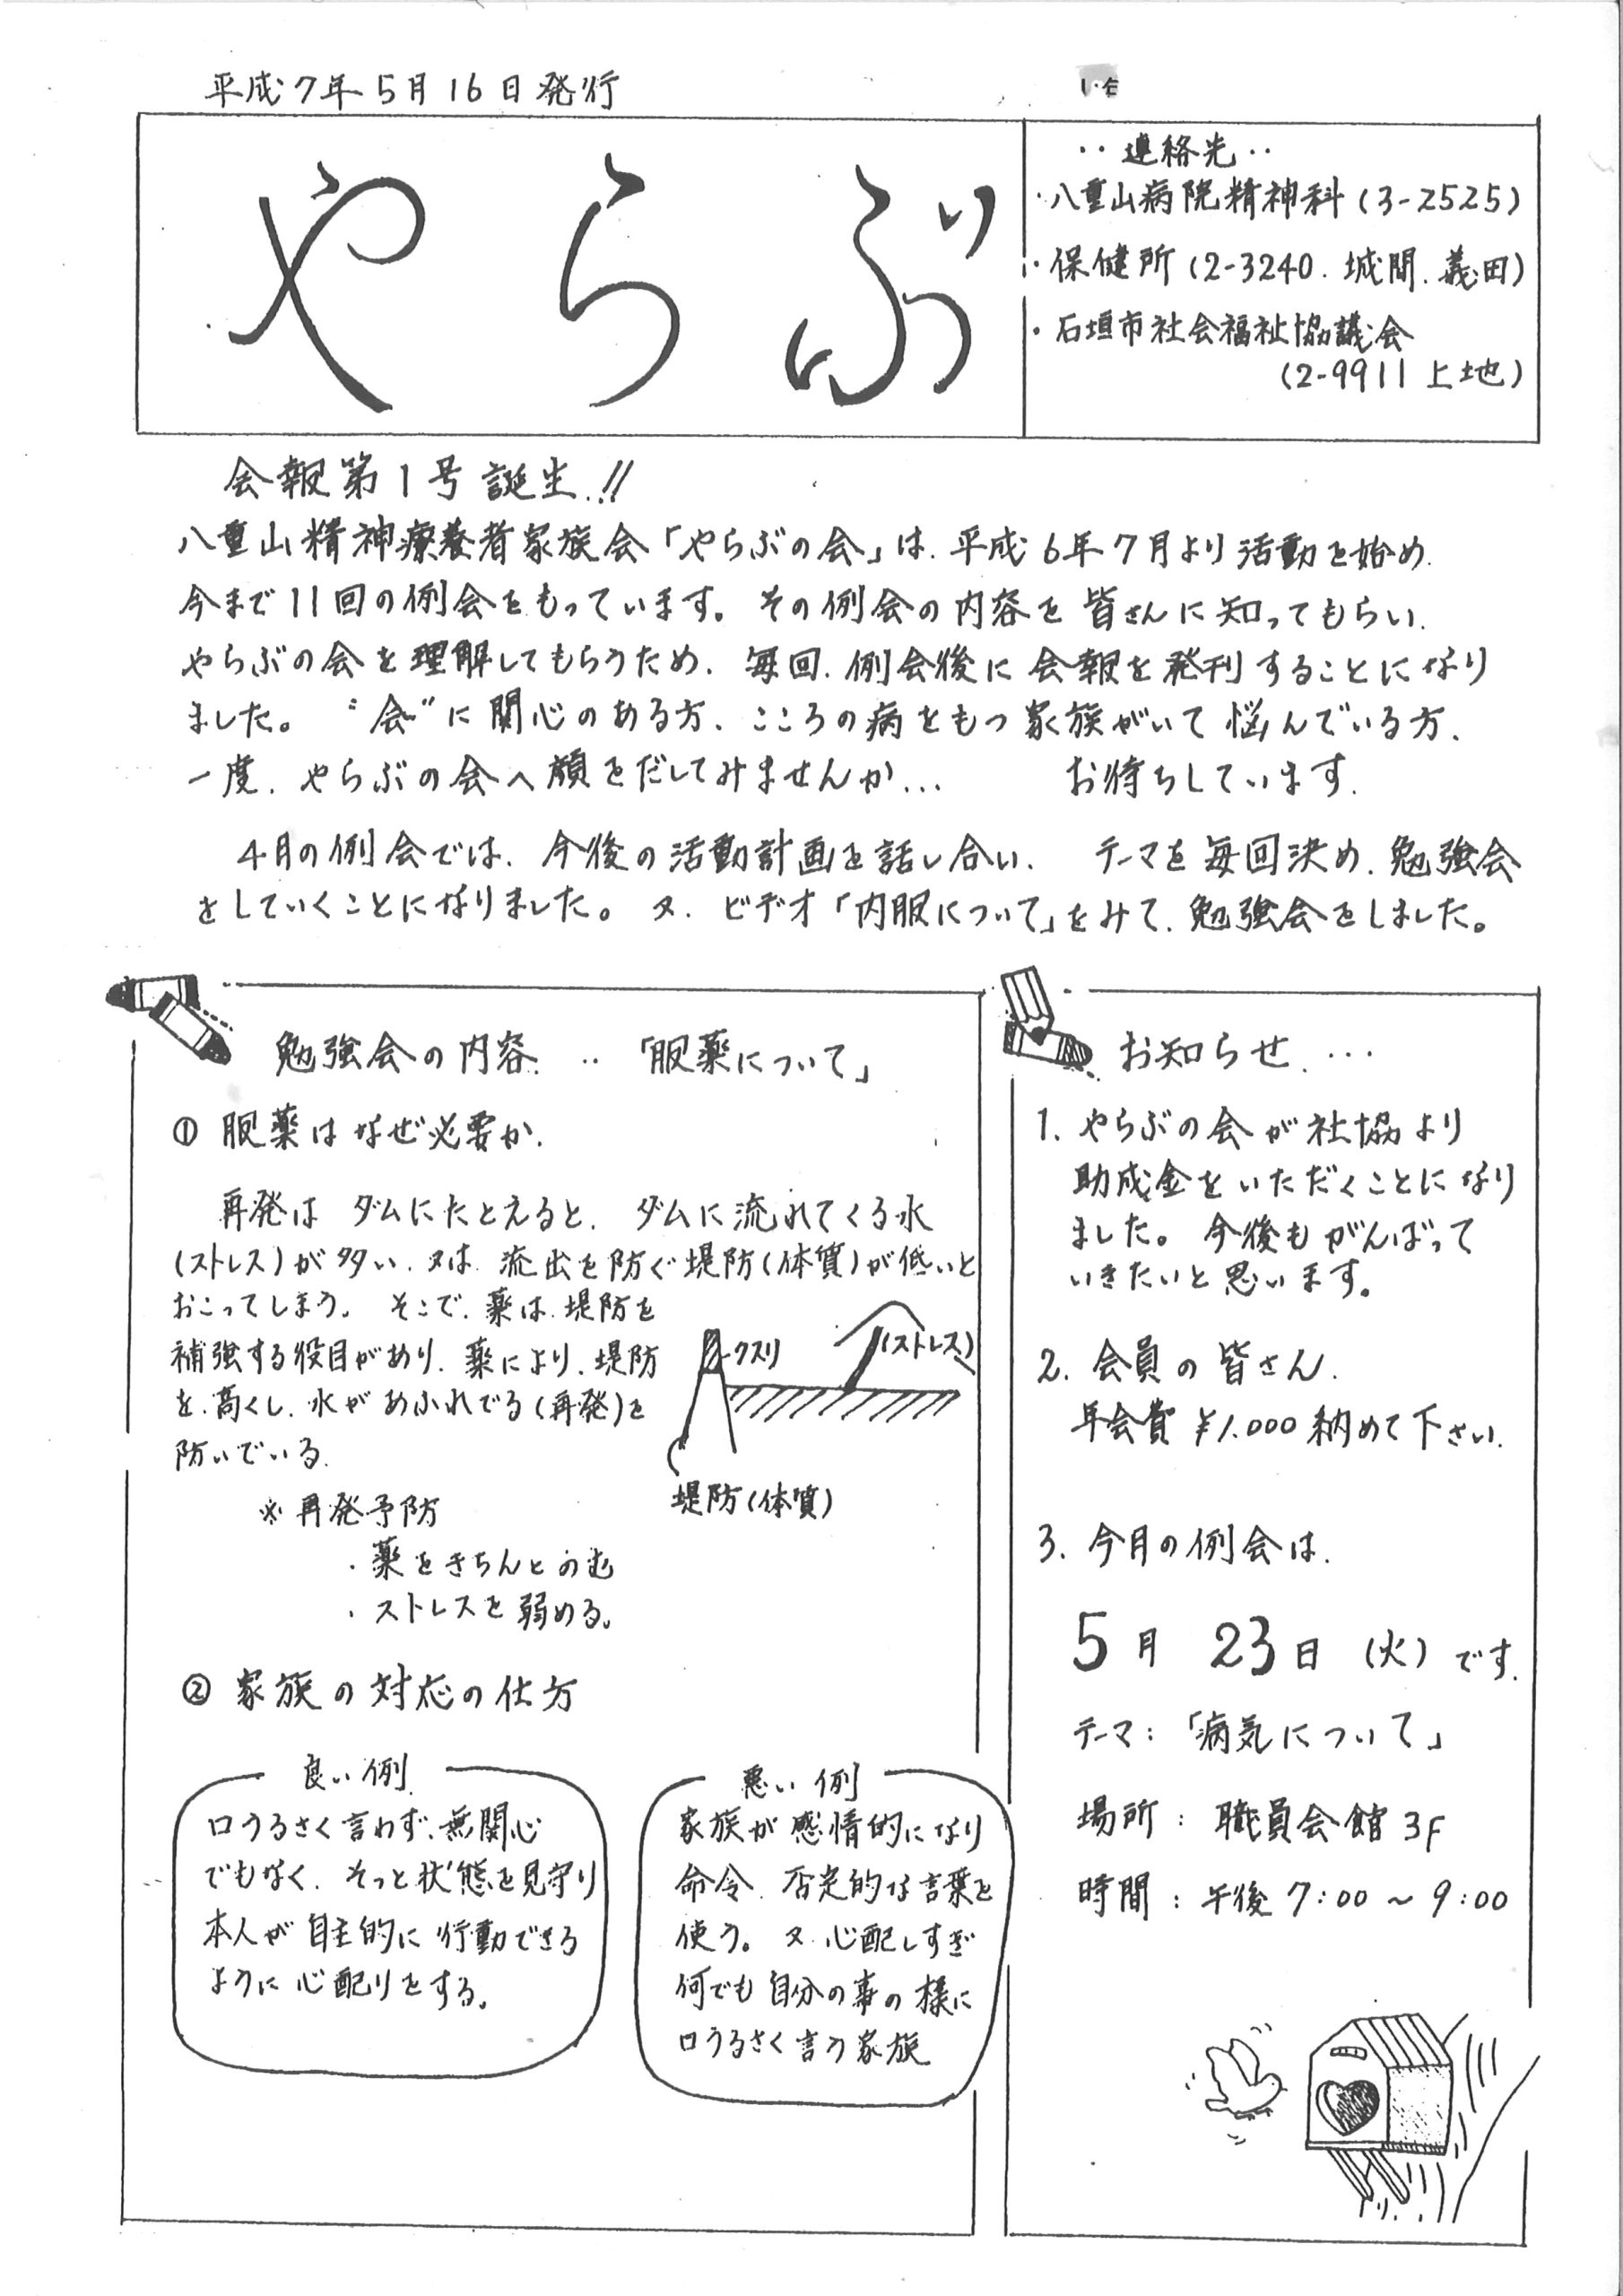 平成7年5月16日発行
やらぶ
‥連絡先‥
・八重山病院精神科(3-2525)
・保健所(2-3240.城間.義田)
・石垣市社会福祉協議会
(2-9911上地)
会報第1号誕生.!!
八重山精神療養者家族会「やらぶの会」は.平成6年7月より活動を始め.
今まで11回の例会をもっています。その例会の内容を皆さんに知ってもらい.
やらぶの会を理解してもらうため.毎回.例会後に会報を発刊することになり
ました。"会"に関心のある方.こころの病をもつ家族がいて悩んでいる方.
一度.やらぶの会へ顔をだしてみませんか… お待ちしています.
4月の例会では.今後の活動計画を話し合い. テーマを毎回決め.勉強会
をしていくことになりました。又.ビデオ「内服について」をみて.勉強会をしました。
勉強会の内容.‥「服薬について」
① 服薬はなぜ必要か.
再発は ダムにたとえると.ダムに流れてくる水
(ストレス)が多い.又は.流出を防ぐ堤防(体質)が低いと
おこってしまう。そこで.薬は.堤防を
補強する役目があり.薬により.堤防
を.高くし.水があふれでる(再発)を
防いでいる.
クスリ
(ストレス)
堤防(体質)
※再発予防
・薬をきちんとのむ
・ストレスを弱める。
② 家族の対応の仕方
良い例.
口うるさく言わず.無関心
でもなく.そっと状態を見守り
本人が自主的に行動できる
ように心配りをする。
悪い例
家族が感情的になり
命令.否定的な言葉を
使う。又.心配しすぎ
何でも自分の事の様に
口うるさく言う家族
お知らせ.…
1. やらぶの会が社協より
助成金をいただくことになり
ました。今後もがんばって
いきたいと思います。
2. 会員の皆さん.
年会費¥1.000納めて下さい.
3. 今月の例会は.
5月 23日(火)です.
テーマ:「病気について」
場所:職員会館3F
時間:午後7:00～9:00